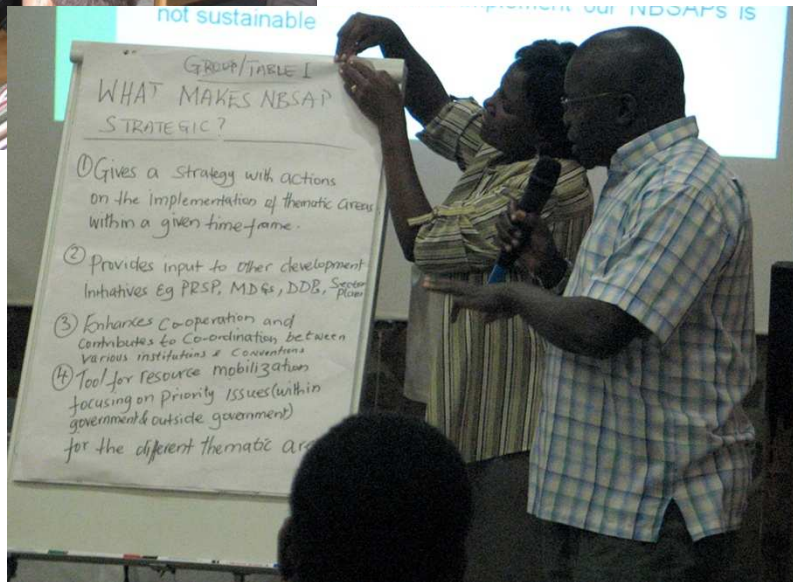 implement our NBSAPs is
not sustainable
GROUP/TABLE 1
WHAT MAKES NBSAP
STRATEGIC?
① Gives a strategy with actions
on the implementation of thematic areas
within a given time-frame.
② Provides input to other development
Initiatives Eg PRSP, MDGs, DDP, Sector
plans
③ Enhances Co-operation and
contributes to Co-ordination between
various institutions & Conventions
④ Tool for resource mobilization
focusing on priority Issues (within
government & outside government)
for the different thematic